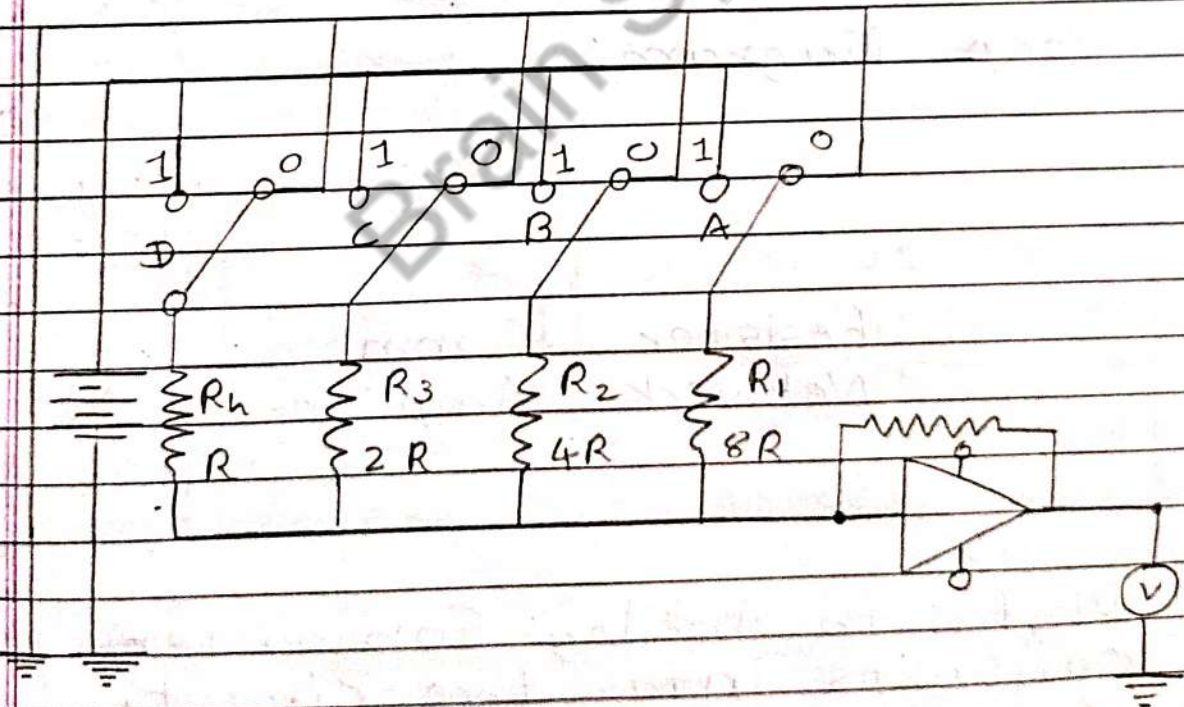 Brain
1 0 1 0 1 0 1 0
D C B A
Rh R3 R2 R1
R 2R 4R 8R
V